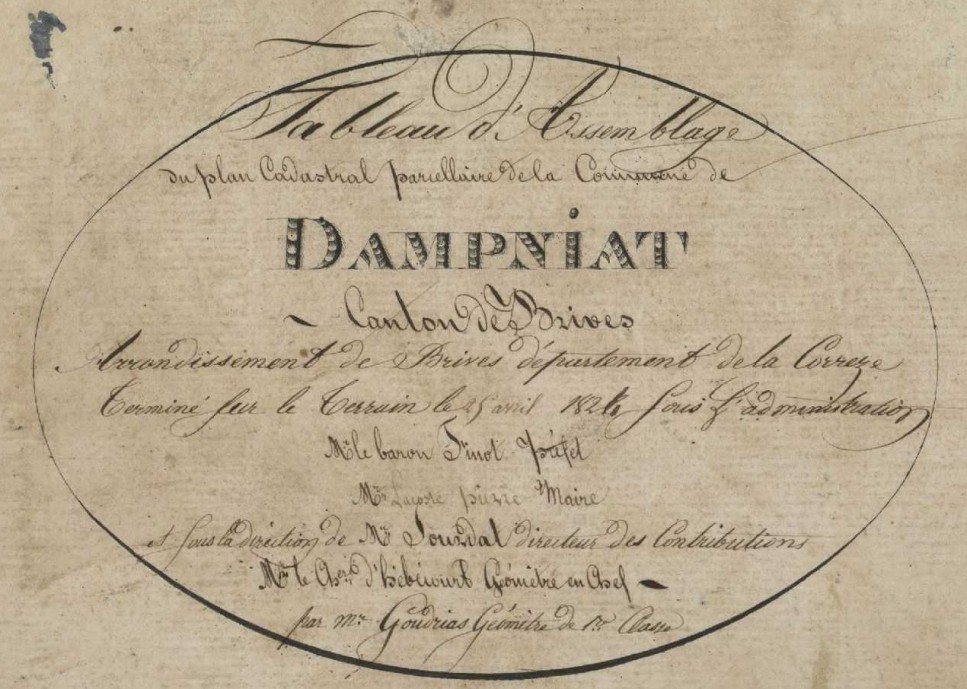 Tableau d'Assemblage
du plan Cadastral parcellaire de la Commune de
DAMPNIAT
~ Canton de Brives
Arrondissement de Brives département de la Correze
Terminé sur le Terrain le 25 avril 1824 sous L'administration
Mr le baron Finot préfet
Mr Lacoste pierre Maire
et sous la direction de Mr Jourdal directeur des Contributions
Mr le Cher d'hébécourt Géomètre en Chef -
par mr Goudrias Géomètre de 1re Classe